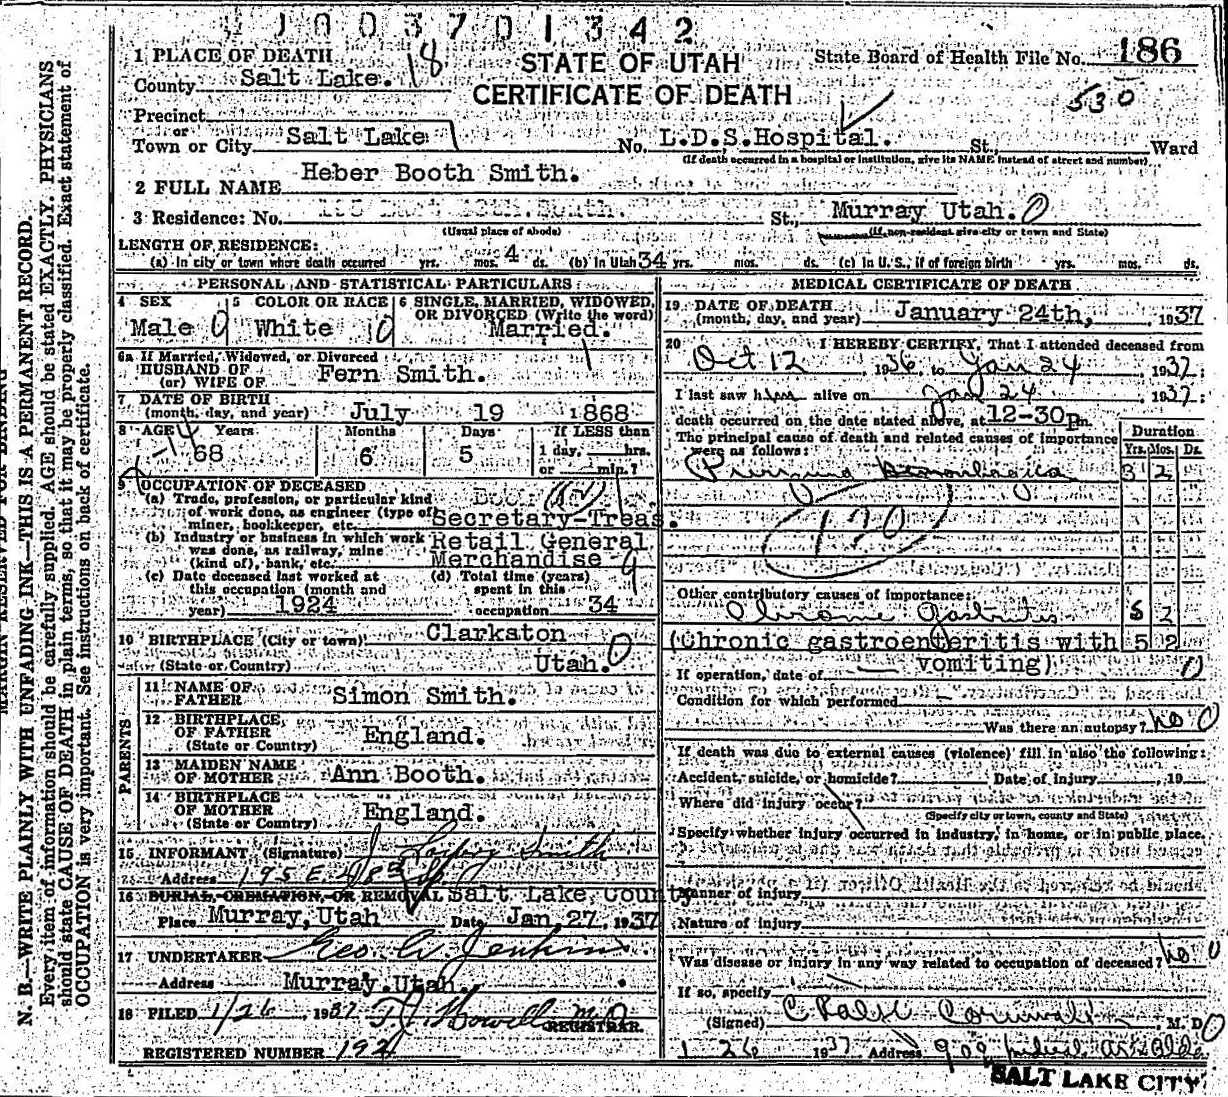 1003701342
1 PLACE OF DEATH
STATE OF UTAH
State Board of Health File No. 186
County Salt Lake. 18
CERTIFICATE OF DEATH
530
Precinct
or
Town or City Salt Lake No. L.D.S.Hospital. St., Ward
(If death occurred in a hospital or institution, give its NAME instead of street and number)
2 FULL NAME Heber Booth Smith.
3 Residence: No. St., Murray Utah. 0
(Usual place of abode) (If non-resident give city or town and State)
LENGTH OF RESIDENCE:
(a) In city or town where death occurred yrs. mos. 4 ds. (b) In Utah 34 yrs. mos. ds. (c) In U. S., if of foreign birth yrs. mos. ds.
PERSONAL AND STATISTICAL PARTICULARS
4 SEX
Male 0
5 COLOR OR RACE
White 0
6 SINGLE, MARRIED, WIDOWED, OR DIVORCED (Write the word)
Married.
6a If Married, Widowed, or Divorced
HUSBAND OF
(or) WIFE OF Fern Smith.
7 DATE OF BIRTH
(month, day, and year) July 19 1868
8 AGE Years Months Days If LESS than
68 6 5 1 day, hrs.
or min.?
9 OCCUPATION OF DECEASED
(a) Trade, profession, or particular kind
of work done, as engineer (type of)
miner, bookkeeper, etc. Secretary-Treas.
(b) Industry or business in which work Retail General
was done, as railway, mine
(kind of), bank, etc. Merchandise
(c) Date deceased last worked at
this occupation (month and
year) 1924
(d) Total time (years)
spent in this
occupation 34
10 BIRTHPLACE (City or town) Clarkston
(State or Country) Utah. 0
PARENTS
11 NAME OF
FATHER Simon Smith.
12 BIRTHPLACE
OF FATHER England.
(State or Country)
13 MAIDEN NAME
OF MOTHER Ann Booth.
14 BIRTHPLACE
OF MOTHER England.
(State or Country)
15 INFORMANT (Signature) Smith
Address 195 E 48
16 BURIAL, CREMATION, OR REMOVAL Salt Lake County
Place Murray, Utah Date Jan, 27, 1937
17 UNDERTAKER Geo. W. Jenkins
Address Murray. Utah.
18 FILED 1/26, 1937 T J Howells M D
REGISTRAR.
REGISTERED NUMBER 192
MEDICAL CERTIFICATE OF DEATH
19 DATE OF DEATH
(month, day, and year) January 24th, 1937
20 I HEREBY CERTIFY, That I attended deceased from
Oct 12, 1936, to Jan 24, 1937;
I last saw him alive on Jan 24, 1937;
death occurred on the date stated above, at 12-30 Pm.
The principal cause of death and related causes of importance
were as follows:
Duration
Yrs. Mos. Ds.
3 2
Other contributory causes of importance:
Chronic Gastritis 5 2
(Chronic gastroenteritis with 5 2
vomiting)
If operation, date of 0
Condition for which performed
Was there an autopsy? no 0
If death was due to external causes (violence) fill in also the following:
Accident, suicide, or homicide? Date of injury , 19
Where did injury occur?
(Specify city or town, county and State)
Specify whether injury occurred in industry, in home, or in public place.
Manner of injury
Nature of injury
Was disease or injury in any way related to occupation of deceased? no 0
If so, specify
(Signed) M. D.
1 26 1937 Address
SALT LAKE CITY
MARGIN RESERVED FOR BINDING
N. B.—WRITE PLAINLY WITH UNFADING INK—THIS IS A PERMANENT RECORD.
Every item of information should be carefully supplied. AGE should be stated EXACTLY. PHYSICIANS
should state CAUSE OF DEATH in plain terms, so that it may be properly classified. Exact statement of
OCCUPATION is very important. See instructions on back of certificate.